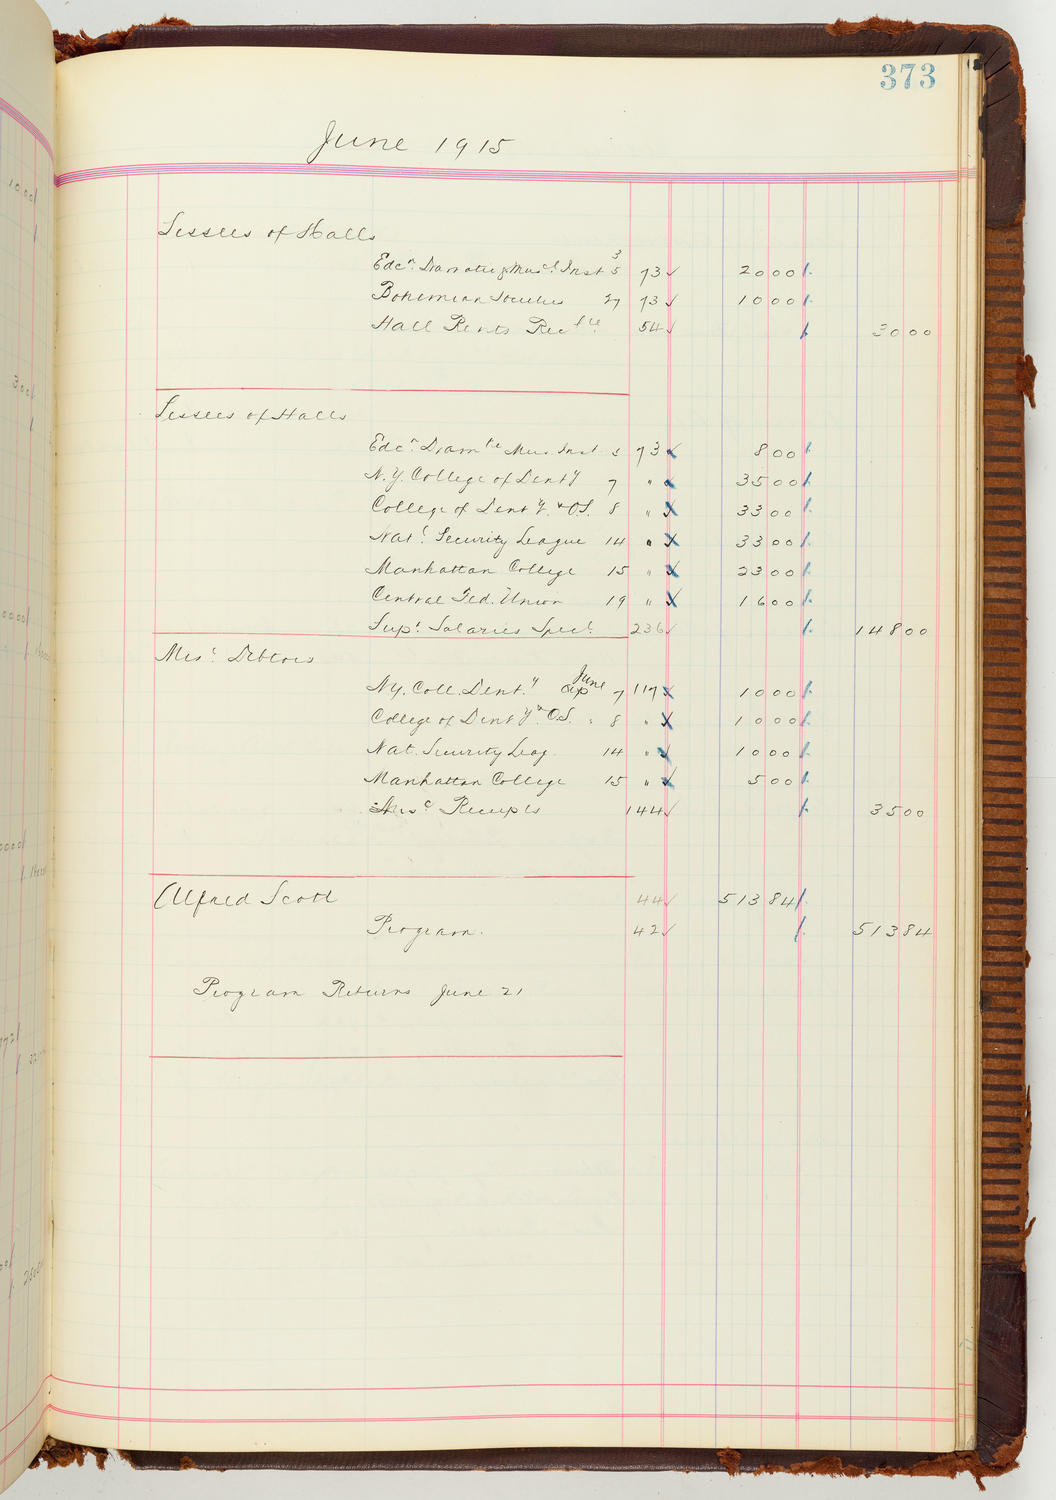 373
June 1915
Lessees of Halls
Edcn. Dramatic & Musc! Inst 3 5 73 ✓ 2000
Bohemian Societies 27 73 ✓ 1000
Hall Rents Rec'ble 54 ✓ 3000
Lessees of Halls
Edcn Dramtc Mus. Inst 5 73 ✓ 800
N.Y. College of Denty 7 " 3500
College of Denty. & O.S. 8 " 3300
Natl. Security League 14 " 3300
Manhattan College 15 " 2300
Central Fed. Union 19 " 1600
Supt. Salaries Specl. 236 ✓ 14800
Miss. Debtors
NY. Coll. Dent.y June 7 117 1000
College of Denty & O.S. " 8 " 1000
Nat. Security Leag. 14 " 1000
Manhattan College 15 " 500
Misc Receipts 144 ✓ 3500
Alfred Scott 44 ✓ 51384
Program. 42 ✓ 51384
Program Returns June 21